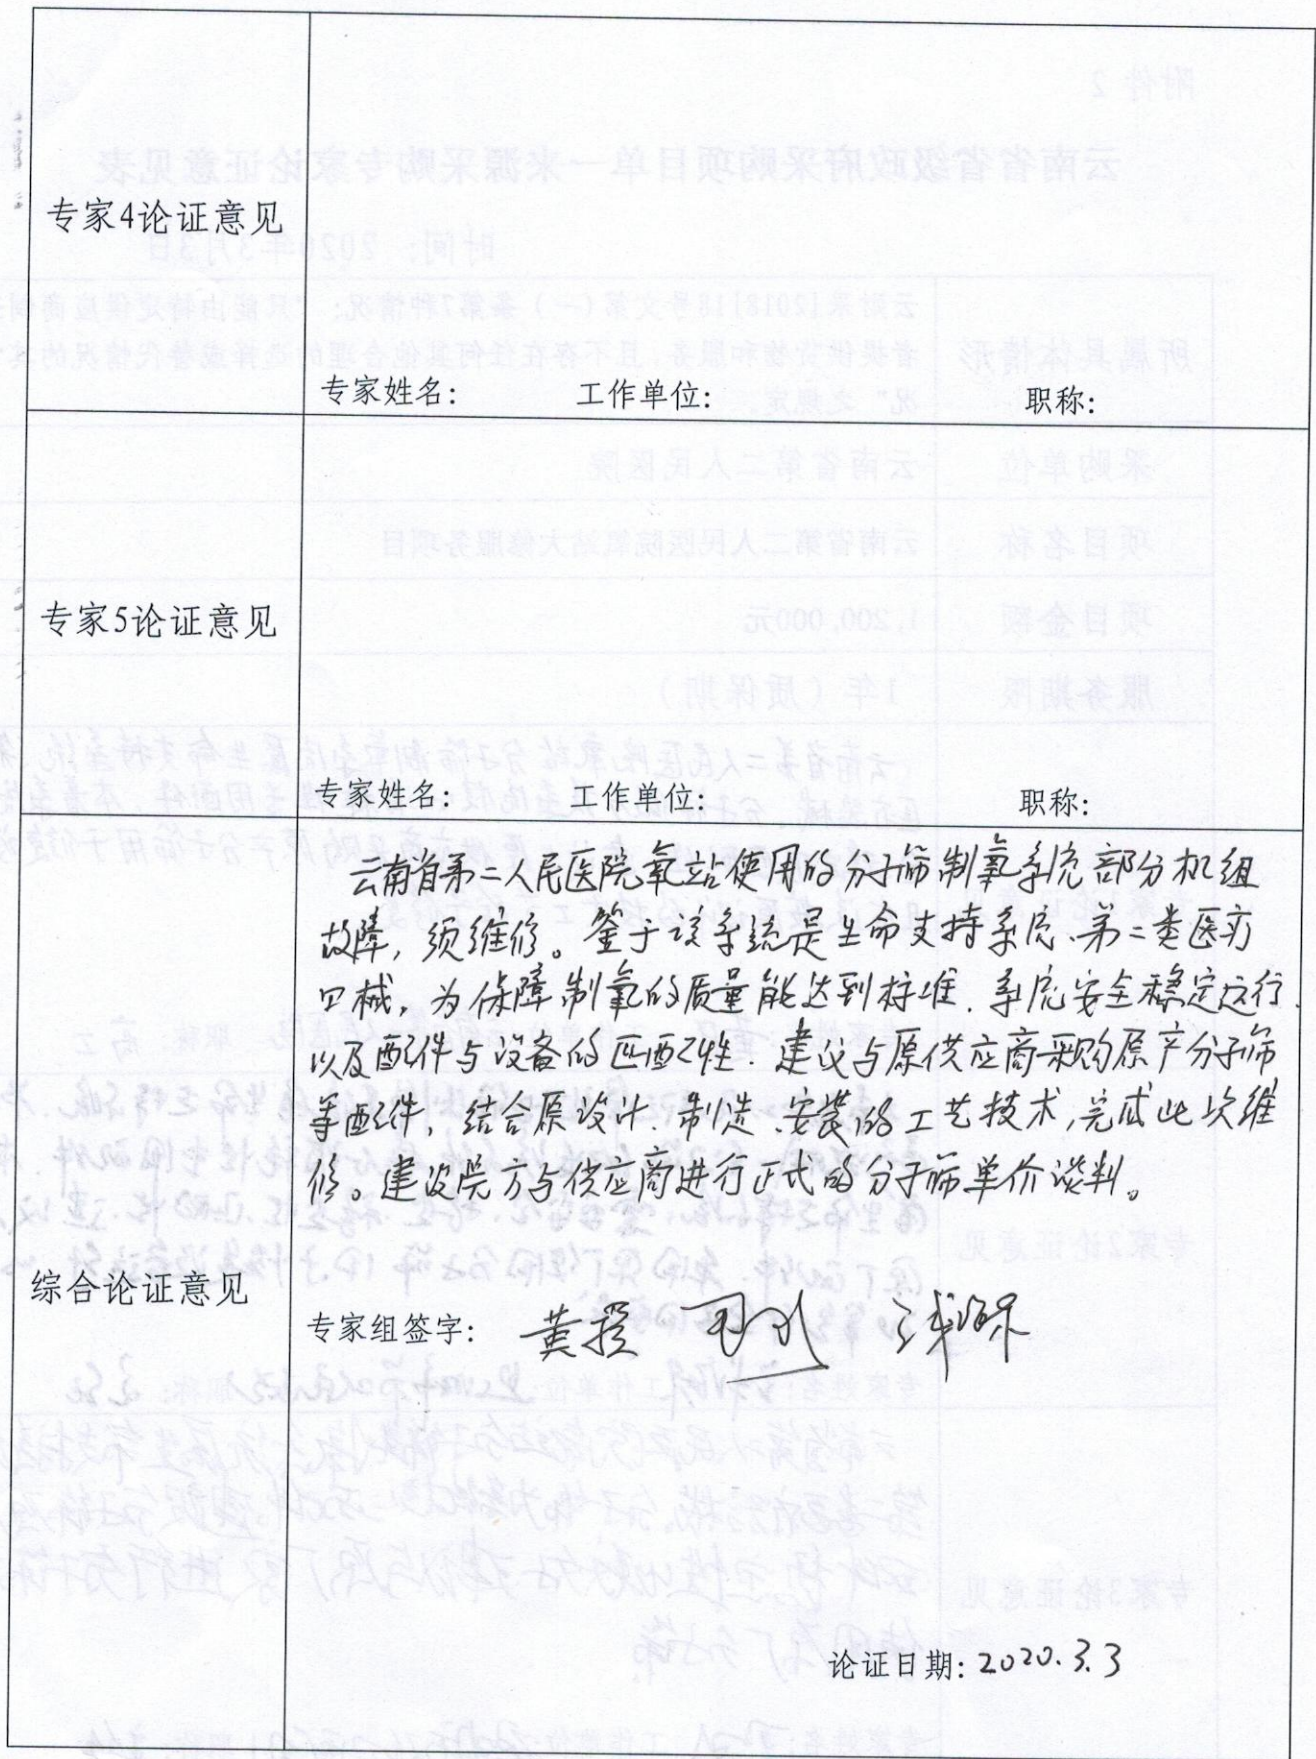 专家4论证意见
专家姓名： 工作单位： 职称：
专家5论证意见
专家姓名： 工作单位： 职称：
云南省第二人民医院氧站使用的分子筛制氧系统部分机组
故障，须维修。鉴于该系统是生命支持系统、第二类医疗
口械，为保障制氧的质量能达到标准、系统安全稳定运行、
以及配件与设备的匹配性．建议与原供应商采购原产分子筛
等配件，结合原设计、制造、安装的工艺技术，完成此次维
修。建议院方与供应商进行正式的分子筛单价谈判。
综合论证意见
专家组签字：
论证日期：2020.3.3